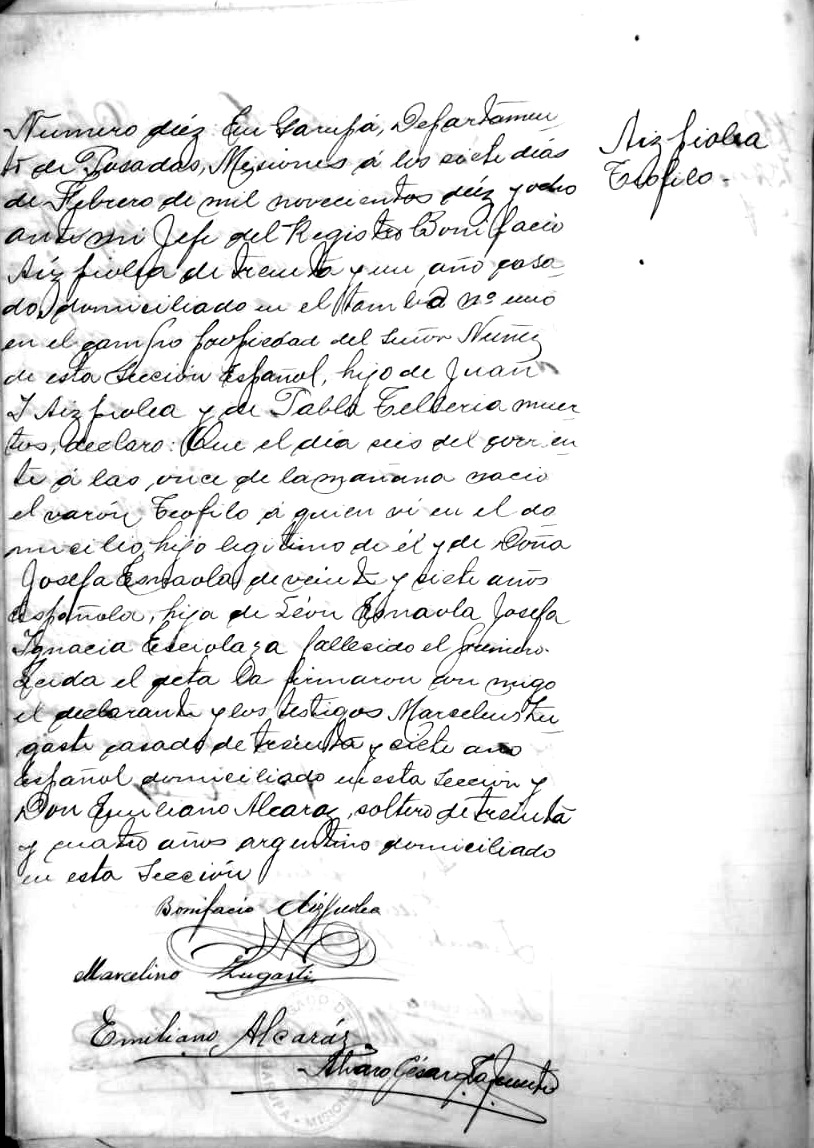 Número diéz En Garupá, Departamen-
to de Posadas, Misiones á los siete días
de Febrero de mil novecientos diéz y ocho
ante mi Jefe del Registro Bonifacio
Aizpiolea de treinta y un año casa-
do, domiciliado en el nº uno
en el campo propiedad del Señor Nuñez
de esta Sección Español, hijo de Juan
I Aizpiolea y de Pabla Telleria muer
tos, declaro: Que el día seis del corrien
te á las once de la mañana nació
el varón Teofilo á quien ví en el do
micilio, hijo legitimo de él y de Doña
Josefa Esnaola, de veinte y siete años
Española, hija de Léon Esnaola Josefa
Ignacia fallecido el primero.
Leida el acta la firmaron con migo
el declarante y los testigos Marcelino Zu-
gasti casado de treinta y siete año
Español domiciliado en esta Sección y
Don Emiliano Alcaraz, soltero de treinta
y cuatro años argentino domiciliado
en esta Sección
Aizpiolea
Teofilo.
Bonifacio Aizpiolea
Marcelino Zugasti
Emiliano Alcaráz
Alvaro César
GARUPA • MISIONES